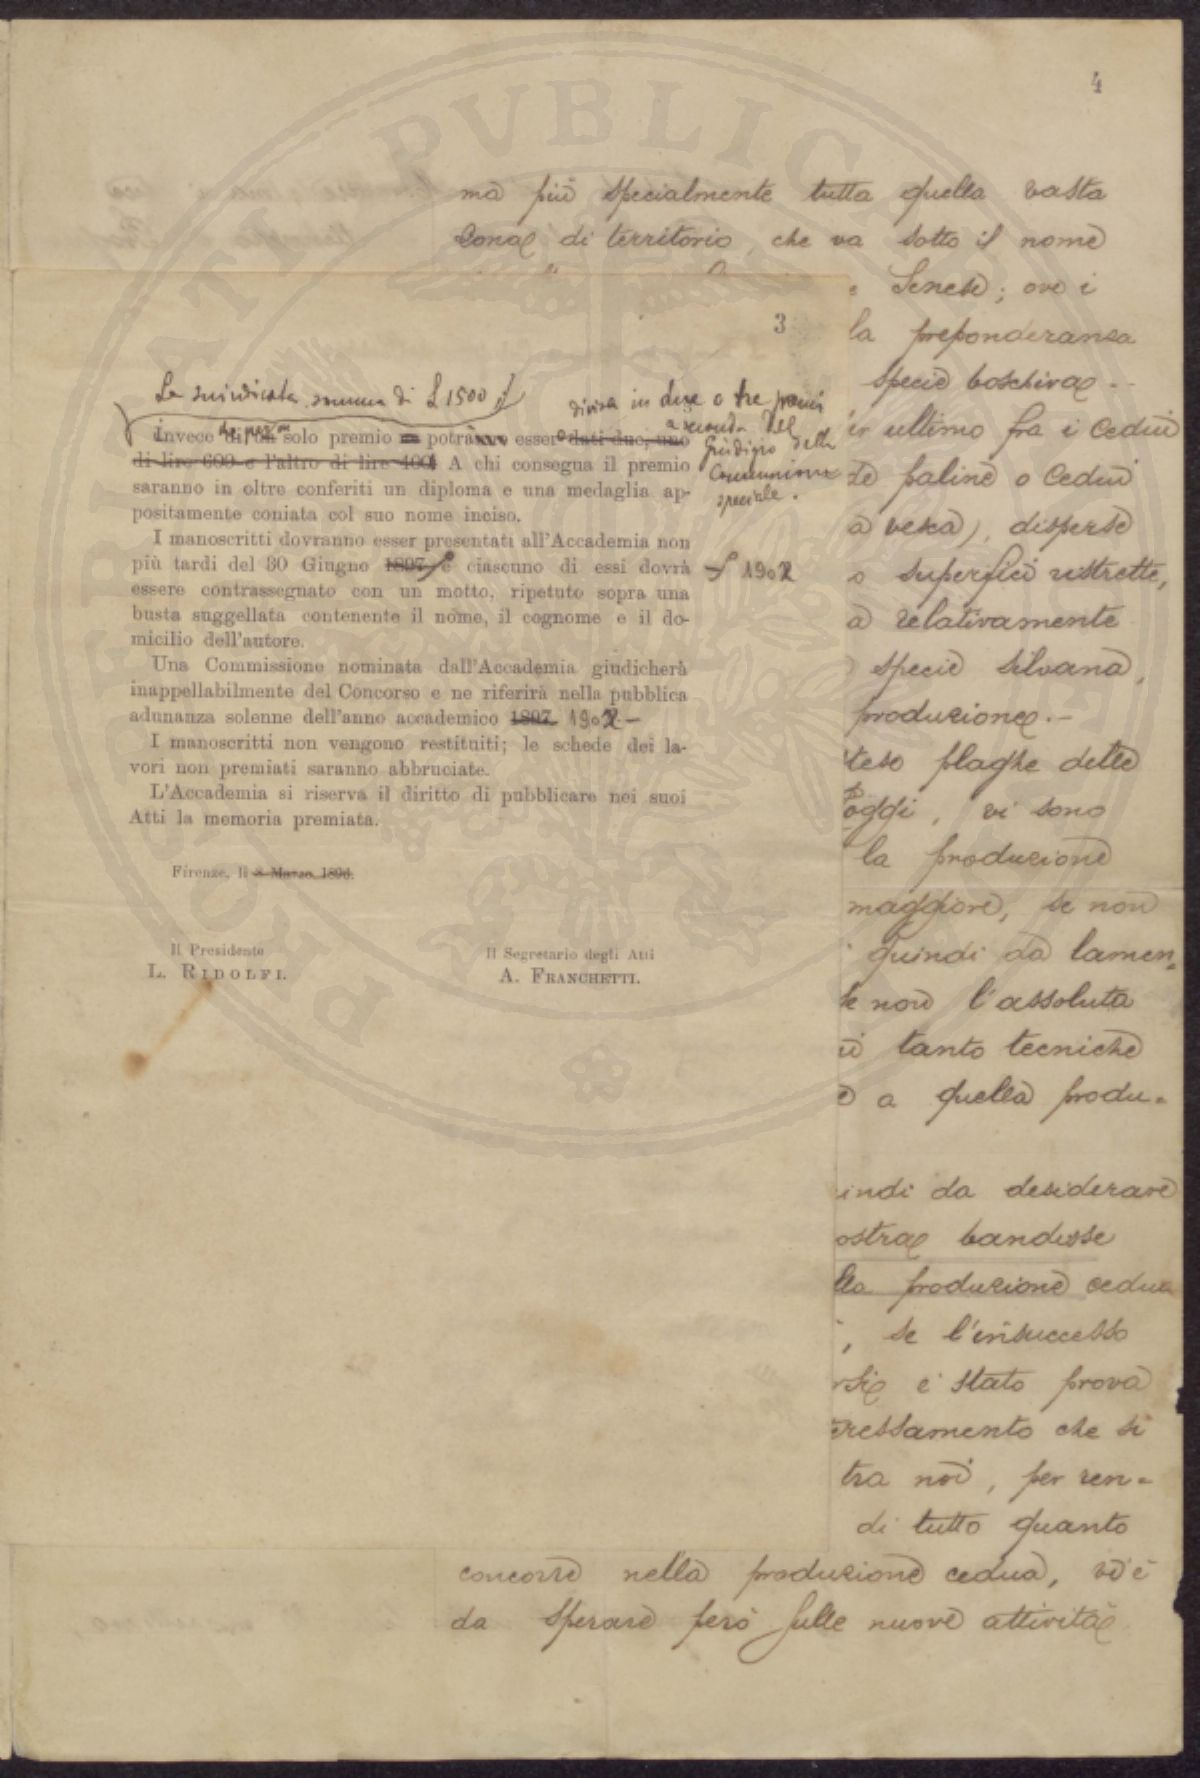 4
ma più specialmente tutta quella vasta
zona di territorio, che va sotto il nome
Senese; ove i
la preponderanza
specie boschiva.
ultimo fra i cedui
paline o cedui
a vesca), disperse
o superfici ristrette,
a relativamente
specie silvana,
produzione.-
plaghe dette
oggi, vi sono
la produzione
maggiore, se non
quindi da lamen-
non l'assoluta
tanto tecniche
a quella produ-
indi da desiderare
ostra bandisse
produzione cedua
, se l'insuccesso
è stato prova
ressamento che si
tra noi, per ren-
di tutto quanto
concorre nella produzione cedua, vi è
da sperare però sulle nuove attività
3
La suindicata somma di £ 1500
divisa in due o tre premi
a seconda del
giudizio della
Commissione
speciale.
Invece di un solo premio potranno esser dati due, uno
di lire 600 e l'altro di lire 400. A chi consegua il premio
saranno in oltre conferiti un diploma e una medaglia ap-
positamente coniata col suo nome inciso.
I manoscritti dovranno esser presentati all'Accademia non
più tardi del 30 Giugno 1897 e ciascuno di essi dovrà
1902
essere contrassegnato con un motto, ripetuto sopra una
busta suggellata contenente il nome, il cognome e il do-
micilio dell'autore.
Una Commissione nominata dall'Accademia giudicherà
inappellabilmente del Concorso e ne riferirà nella pubblica
adunanza solenne dell'anno accademico 1897. 1902 -
I manoscritti non vengono restituiti; le schede dei la-
vori non premiati saranno abbruciate.
L'Accademia si riserva il diritto di pubblicare nei suoi
Atti la memoria premiata.
Firenze, li 8 Marzo 1896.
Il Presidente
L. RIDOLFI.
Il Segretario degli Atti
A. FRANCHETTI.